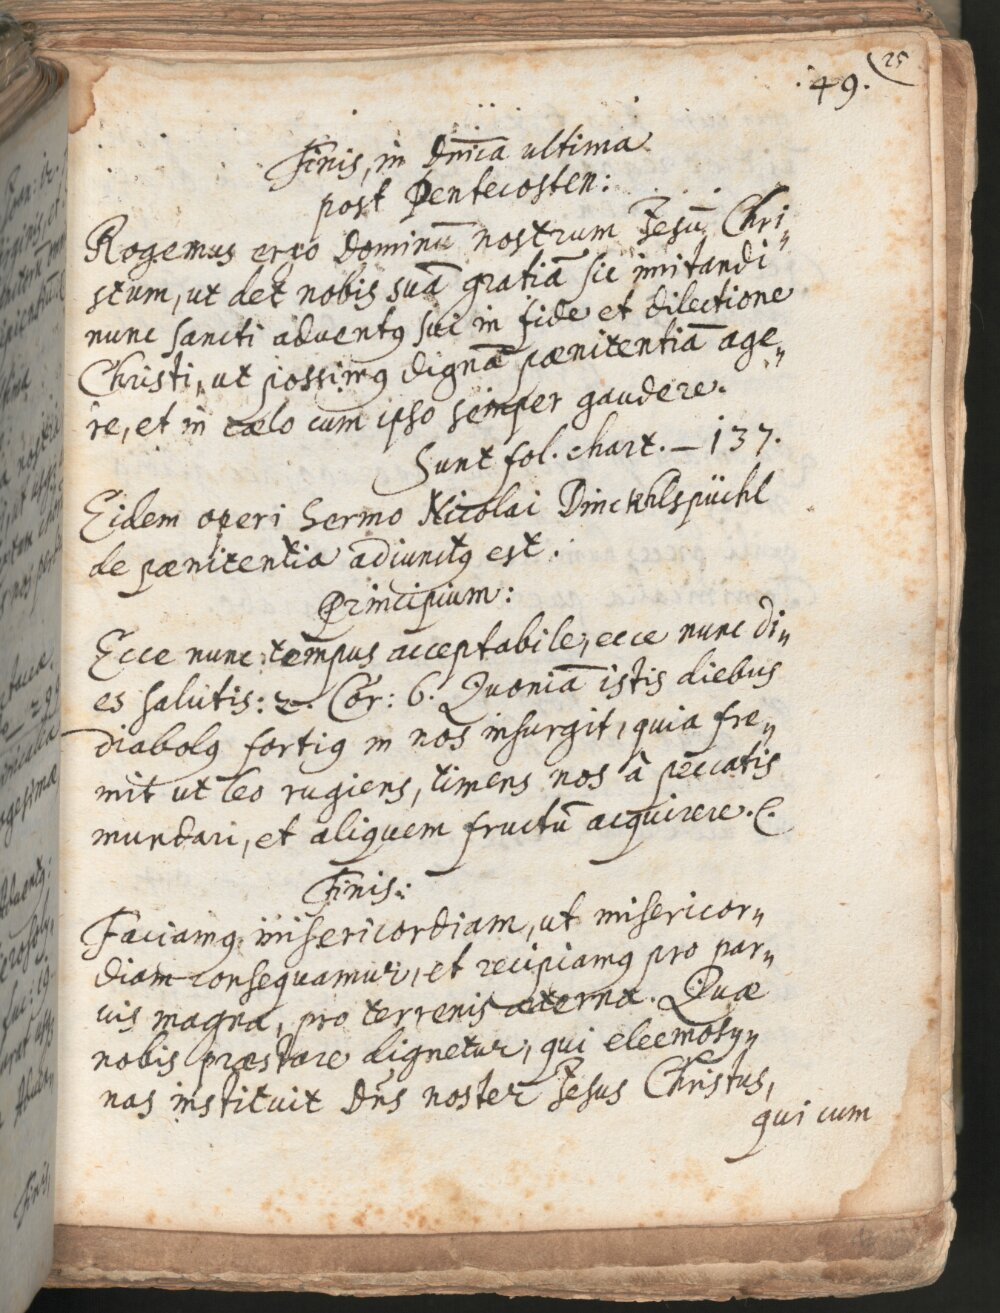 25
.49.
Finis, in Dnica ultima
post Pentecosten:
Rogemus ergo Dominū nostrum Jesū Chri„
stum, ut det nobis suā gratiā sic imitandi
nunc sancti adventꝯ sui in fide et dilectione
Christi, ut possimꝯ dignā pænitentiā age„
re, et in cælo cum ipso semper gaudere.
Sunt fol. chart. — 137.
Eidem operi Sermo Nicolai Dinckhlspüchl
de pænitentia adiunctꝯ est.
Principium:
Ecce nunc tempus acceptabile, ecce nunc di„
es salutis: 2. Cor: 6. Quoniā istis diebus
diabolꝯ fortiꝯ in nos insurgit, quia fre„
mit ut leo rugiens, timens nos â peccatis
mundari, et aliquem fructū acquirere.
Finis:
Faciamꝯ misericordiam, ut misericor„
diam consequamur, et recipiamꝯ pro par„
vis magna, pro terrenis æterna. Quæ
nobis præstare dignetur, qui eleemosy„
nas instituit Dns̄ noster Jesus Christus,
qui cum